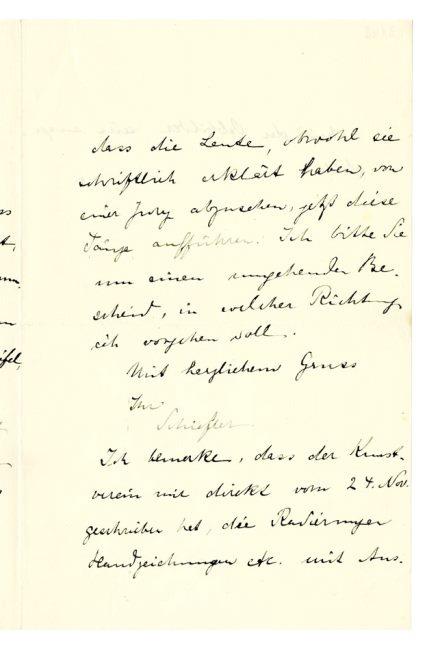 dass die Leute, obwohl sie
schriftlich erklärt haben, von
einer Jury abzusehen, jetzt diese
Tänze aufführen. Ich bitte Sie
um einen umgehenden Be-
scheid, in welcher Richtung
ich vorgehen soll.
Mit herzlichem Gruss
Ihr
Schiefler
Ich bemerke, dass der Kunst-
verein mir direkt vom 24. Nov.
geschrieben hat, die Radierungen
Handzeichnungen etc. mit Aus-